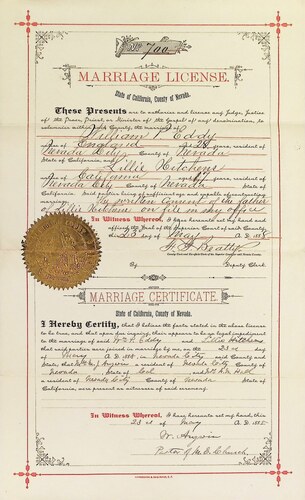 No 700
MARRIAGE LICENSE.
State of California, County of Nevada.
These Presents are to authorize and license any Judge, Justice
of the Peace, Priest, or Minister of the Gospel of any denomination, to
solemnize within said County, the marriage of
William Eddy
England
Nevada City County of Nevada State
of California, and
Lillie Hitchens
California years, resident of
Nevada City County of Nevada State of
California. Said parties being of sufficient age and capable of contracting
marriage. The written consent of the father
of Lillie Hitchens on file in my office
In Witness Whereof, I have hereunto set my hand and
affixed the Seal of the Superior Court of said County
this 23 day of May A. D. 188
F. G. Beatty
By
Deputy Clerk
MARRIAGE CERTIFICATE.
State of California, County of Nevada.
I Hereby Certify, that I believe the facts stated in the above license
to be true, and that upon due inquiry, there appears to be no legal impediment
to the marriage of said Wm Eddy and Lillie Hitchens
that said parties were joined in marriage by me, on the 23d
of May A. D. 188 in Nevada City said County and
State; that a resident of Nevada City County of
Nevada State of Cal. and
a resident of Nevada City County of Nevada State of
California, were present as witnesses of said ceremony.
In Witness Whereof, I have hereunto set my hand this
23d of May A. D. 188
W. Angwin
Pastor of M. E. Church